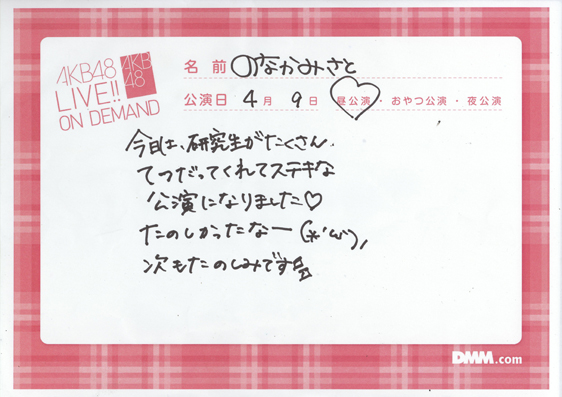 AKB48
LIVE!!
ON DEMAND
AKB
48
名前 のなかみさと
公演日 4月 9日 昼公演・おやつ公演・夜公演
今日は、研究生がたくさん
てつだってくれてステキな
公演になりました♡
たのしかったなー(*'ω')ノ
次もたのしみです
DMM.com